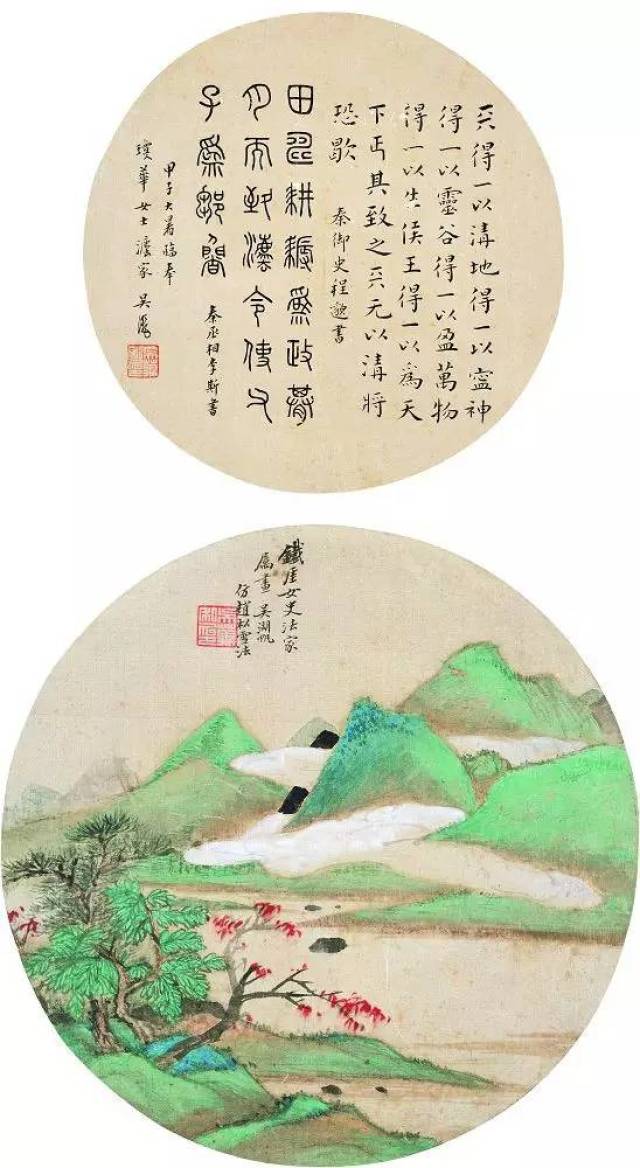 天得一以清地得一以寍神
得一以靈谷得一以盈萬物
得一以生侯王得一以為天
下正其致之天无以清將
恐歇
秦御史程邈書
田疇耕耨為政期
月而致灋令傳
子為鄰閭
秦丞相李斯書
甲子大暑臨奉
瓊華女士灋家 吳
鐵厓女史法家
屬畫 吳湖帆
仿趙松雪法